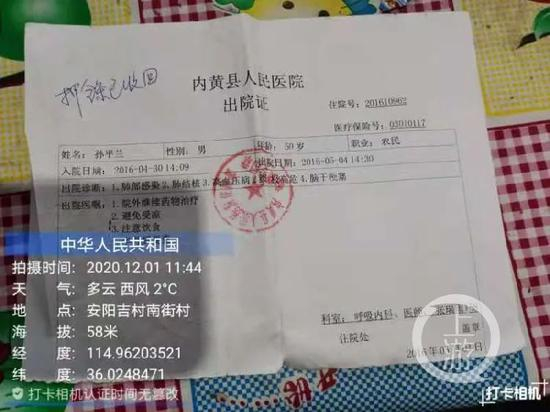 押条已收回
内黄县人民医院
出院证
住院号：201610962
医疗保险号：03010117
姓名：孙平兰 性别：男 年龄：50岁 职业：农民
入院日期：2016-04-30 14:09 出院日期：2016-05-04 14:30
出院诊断：1.肺部感染 2.肺结核 3.高血压病 4.脑干梗塞
出院医嘱：1.院外继续药物治疗
2.避免受凉
3.注意饮食
科室：呼吸内科 医师：张瑞
住院处 盖章
中华人民共和国
拍摄时间：2020.12.01 11:44
天 气：多云 西风 2℃
地 点：安阳吉村南街村
海 拔：58米
经 度：114.96203521
纬 度：36.0248471
打卡相机认证时间无篡改
上游
打卡相机